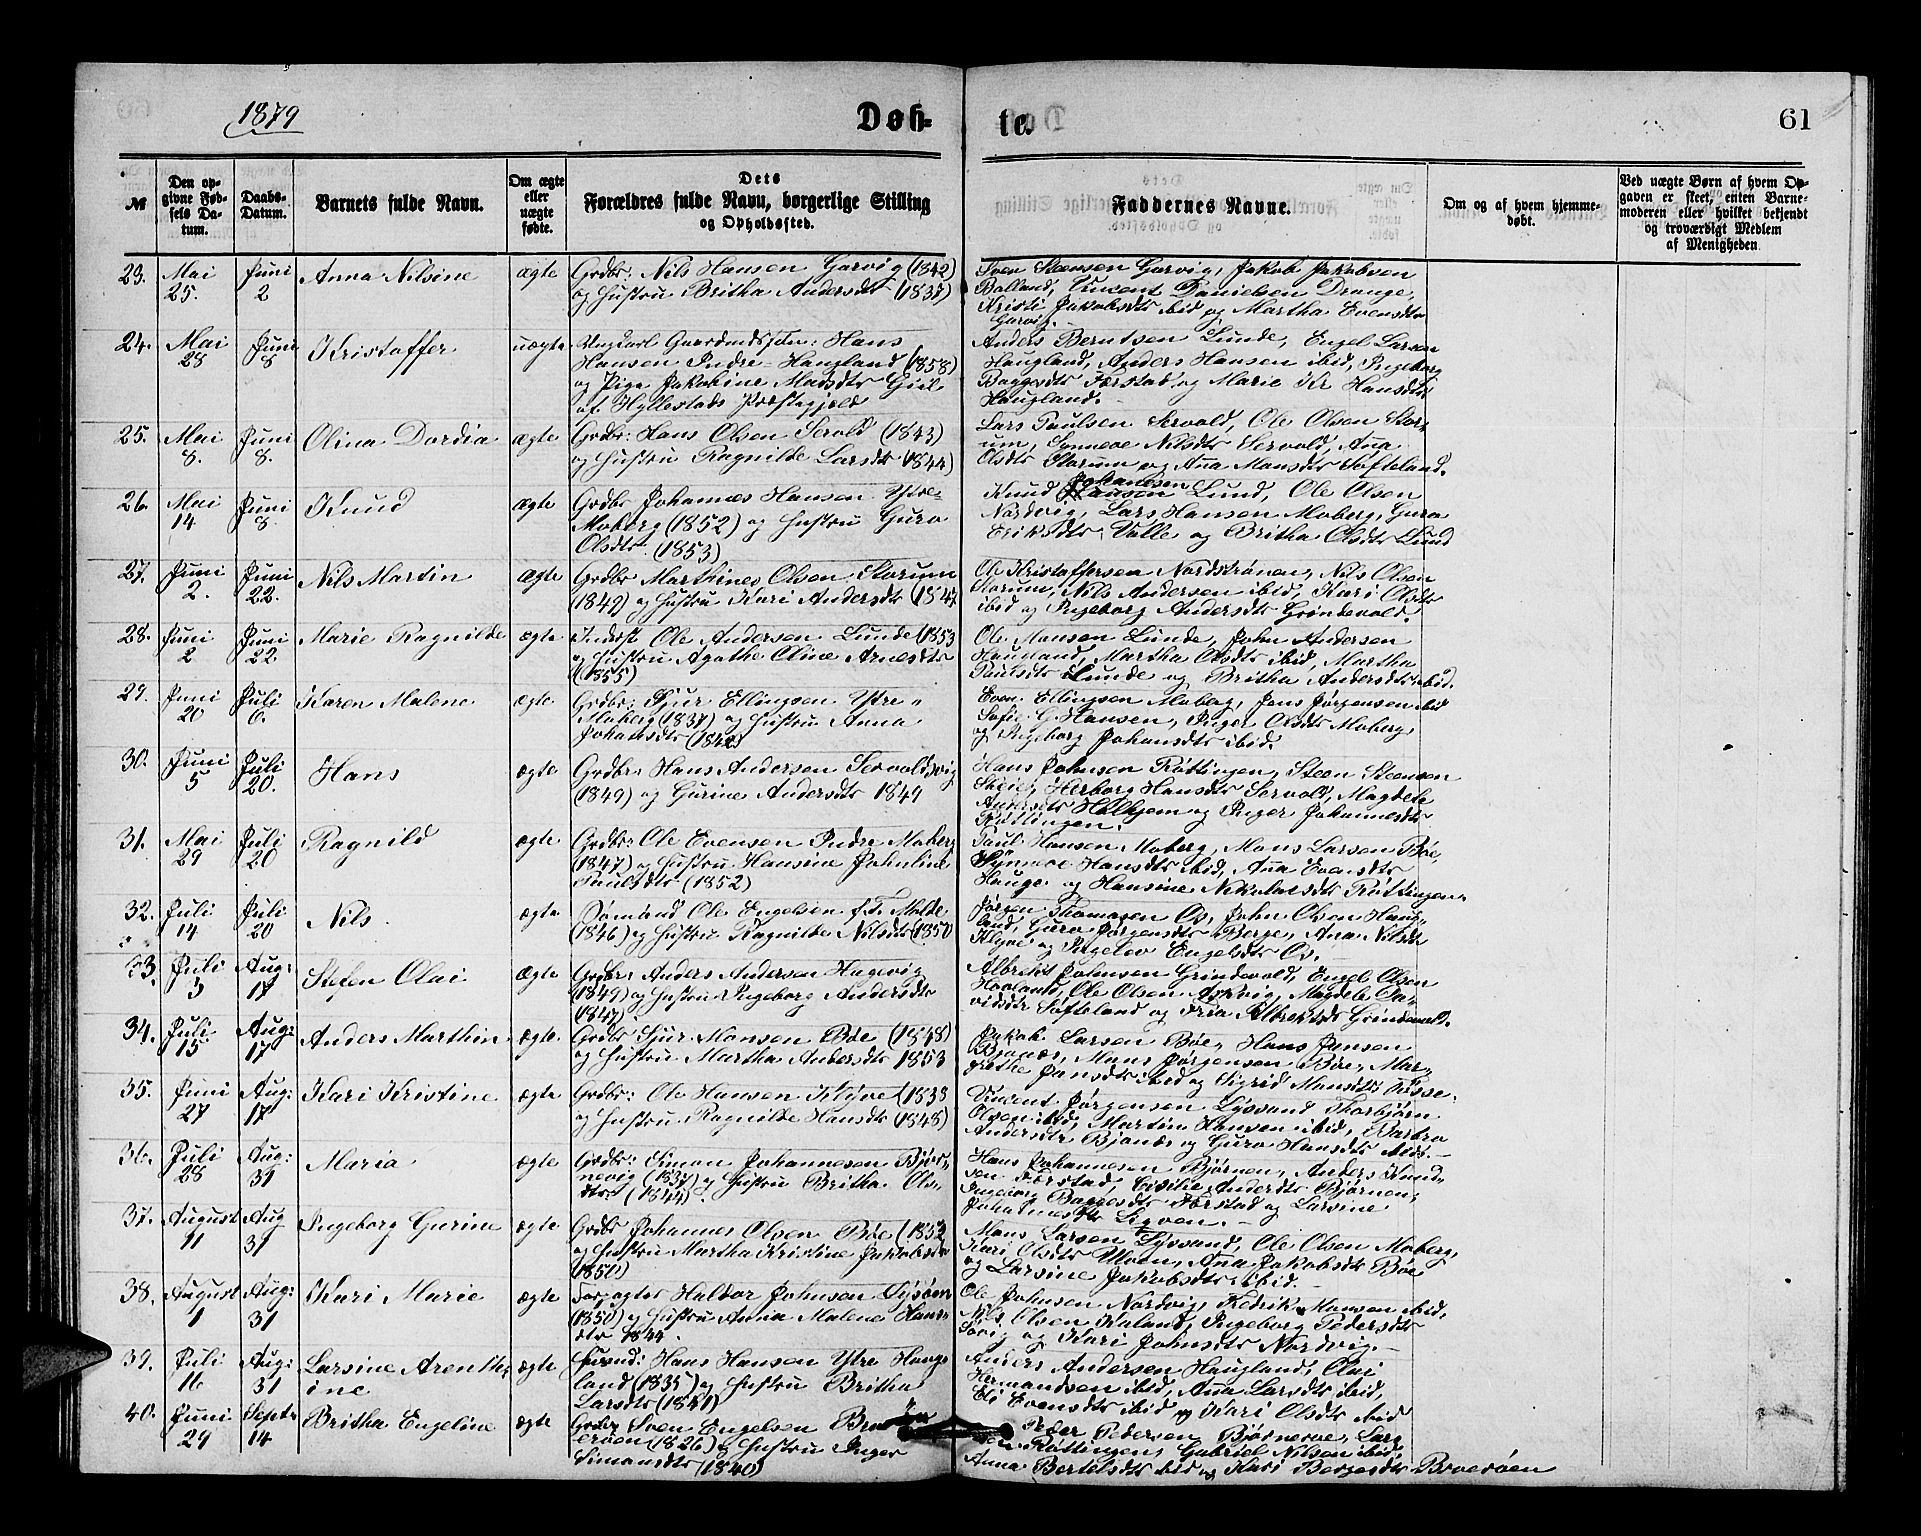 1879
Døb-
te.
61
№
Den op-
givne Fød-
sels Da-
tum.
Daabs-
Datum.
Barnets fulde Navn.
Om ægte
eller
uægte
fødte.
Dets
Forældres fulde Navn, borgerlige Stilling
og Opholdssted.
Faddernes Navne.
Om og af hvem hjemme-
døbt.
Ved uægte Børn af hvem Op-
gaven er skeet, enten Barne-
moderen eller hvilket bekjendt
og troværdigt Medlem
af Menigheden.
23. Mai 25. Juni 2 Anna Nilsine ægte
Grdbr. Nils Hansen Garvig (1842)
og Hustru Britha Andersdtr (1837)
Sven Steensen Garvig, Jakob Jakobsen
Balland, Vincent Danielsen Drange,
Kristi Jakobsdtr ibid og Martha Evensdtr
Garvig.
24. Mai 28 Juni 8 Kristaffer uægte
Ungkarl Gaardmdssøn: Hans
Hansen Indre-Haugland (1858)
og Pige Jakobine Madsdtr
af Hyllestads Præstegjeld
Anders Berntsen Lunde, Engel Larsen
Haugland, Anders Hansen ibid, Ingeborg
Baggesdtr Færstad og Marie Kr Hansdtr
Haugland.
25. Mai 8. Juni 8. Olina Dordia ægte
Grdbr: Hans Olsen Servold (1843)
og Hustru Ragnilde Larsdtr (1844)
Lars Paulsen Servold, Ole Olsen Stor-
um, Synneve Nilsdtr Servold, Ana
Olsdtr Storum og Ana Monsdtr Softeland.
26. Mai 14 Juni 8. Knud ægte
Grdbr Johannes Hansen Ytre-
Moberg (1852) og Hustru Guro
Olsdtr (1853)
Johanesen
Knud Hansen Lund, Ole Olsen
Nordvig, Lars Hansen Moberg, Guro
Eriksdtr Valle og Britha Olsdtr Lund
27. Juni 2. Juni 22. Nils Martin ægte
Grdbr Marthines Olsen Storum
(1849) og Hustru Kari Andersdtr
Ole Kristaffersen Nordstrønen, Nils Olsen
Storum, Nils Andersen ibid, Kari Olsdtr
ibid og Ingeborg Andersdtr Grindevold.
28. Juni 2 Juni 22 Marie Ragnilde ægte
Inderst Ole Andersen Lunde (1853
og Hustru Agathe Oline Arnesdtr
(1855)
Ole Hansen Lunde, John Andersen
Haugland, Martha Olsdtr ibid, Martha
Paulsdtr Lunde og Britha Andersdtr ibid.
29. Juni 20 Juli 6. Karen Malene ægte
Grdbr: Sjur Ellingsen Ytre-
Moberg (1837) og Hustru Anna
Johansdtr
Even Ellingsen Moberg, Jens Jørgensen ibid
Sofie G Hansen, Inger Olsdtr Moberg,
og Ingeborg Johansdtr ibid.
30. Juni 5 Juli 20. Hans ægte
Grdbr: Hans Andersen Servoldsvig
(1849) og Gurine Andersdtr 1849
Hans Johnsen Røttingen, Steen Steensen
Skeie, Herborg Hansdtr Servold, Magdele
Andersdtr Halhjem og Inger Johannesdtr
Røttingen.
31. Mai 29 Juli 20 Ragnild ægte
Grdbr: Ole Evensen Indre Moberg
(1847) og Hustru Hansine Johnline
Paulsdtr (1852)
Paul Hansen Moberg, Mons Larsen Bøe,
Synneve Hansdtr ibid, Ana Evensdtr
Hauge og Hansine Nikolaisdtr Røttingen.
32. Juli 14 Juli 20 Nils. ægte
Sømand Ole Engelsen f.T. Molde
(1846) og Hustru Ragnilde Nilsdtr (1850
Jørgen Thomasen Os, John Olsen Haug-
land, Guro Jørgensdtr Berge, Ana Nilsdtr
Klyve og Ingelev Engelsdtr Os.
33. Juli 3 Aug: 17 Stefen Olai ægte
Grdbr: Anders Andersen Hagevig
(1849) og Hustru Ingeborg Andersdtr
(1847)
Albrekt Johnsen Grindevold, Engel Olsen
Haaland, Ole Olsen Askvig, Magdele Da-
vidsdtr Softeland og Albrektsdtr Grindevold.
34. Juli 15 Aug: 17 Anders Marthin ægte
Grdbr Sjur Monsen Bøe (1848)
og Hustru Martha Andersdtr 1853
Jakob Larsen Bøe, Hans Jansen
Bjonæs, Mons Jørgensen Bøe, Mar-
grethe Jansdtr ibid og Sigrid Monsdtr
35. Juni 27 Aug: 17 Kari Kristine ægte
Grdbr: Ole Hansen Klyve (1838
og Hustru Ragnilde Hansdtr (1848)
Vincent Jørgensen Lyssand, Thorbjørn
Olsen ibid, Martin Hansen ibid, Barbro
Andersdtr Bjonæs og Guro Hansdtr ibid.
36. Juli 28 Aug: 31 Maria ægte
Grdbr: Simon Johannesen Bjør-
nevig (1837) og Hustru Britha Ols-
dtr (1844)
Hans Johannesen Bjørnen, Anders Knud-
sen Færstad, Cecilie Andersdtr Bjørnen,
Ingeborg Baggesdtr Færstad og Larsine
Johannesdtr
37. August 11 Aug 31 Ingeborg Gurine ægte
Grdbr Johannes Olsen Bøe (1852
og Hustru Martha Kristine Jakobsdtr
(1850)
Mons Larsen Lyssand, Ole Olsen Moberg,
Kari Olsdtr Ulven, Ana Jakobsdtr Bøe
og Larsine Jakobsdtr ibid.
38. August 1 Aug: 31 Kari Marie ægte
Forpagter Haldor Johnsen Lysøen
(1850) og Hustru Anna Malene Hans-
dtr 1844.
Ole Johnsen Nordvig, Fedrik Monsen ibid,
Nils Olsen Kaland, Ingeborg Pedersdtr
Søvig og Kari Johnsdtr Nordvig.
39. Juli 16 Aug: 31 Larsine Arenth- ægte
ine
Husmd: Hans Hansen Ytre Haug-
land (1835) og Hustru Britha
Larsdtr (1841)
Anders Andersen Haugland, Olai
Hermandsen ibid, Ana Larsdtr ibid,
Eli Evensdtr ibid og Kari Olsdtr ibid
40. Juni 29 Septr 14 Britha Engeline ægte
Grdbr Sven Engelsen
erøen (1826) og Hustru Inger
Simonsdtr (1840)
Peder Pedersen Bjørnevæ, Lars
Røttingen, Gabriel Nilsen ibid,
Anna Bertelsdtr ibid og Kari Børgesdtr Broerøen